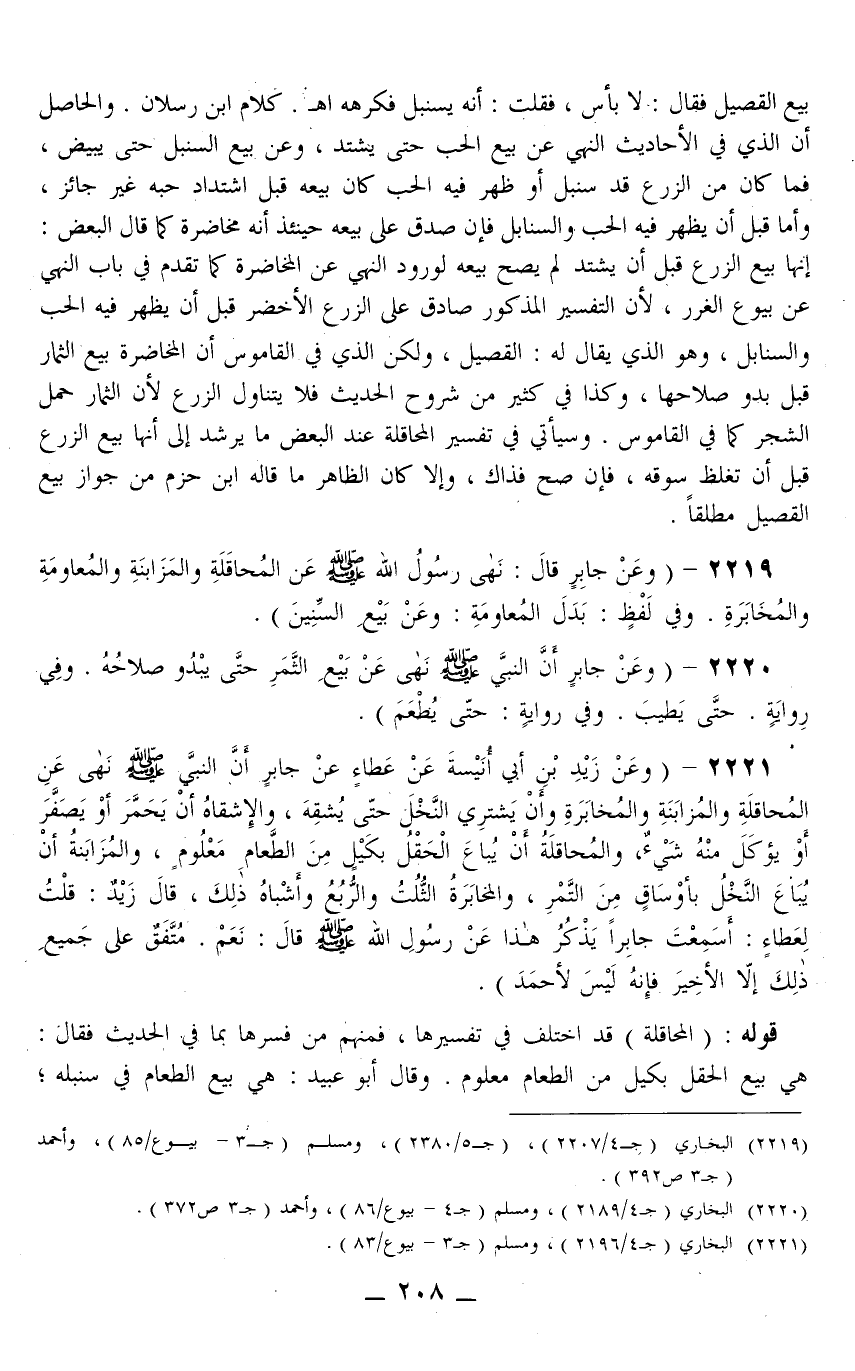 بيع القصيل فقال : لا بأس ، فقلت : أنه يسنبل فكرهه اهـ . كلام ابن رسلان . والحاصل
أن الذي في الأحاديث النهي عن بيع الحب حتى يشتد ، وعن بيع السنبل حتى يبيض ،
فما كان من الزرع قد سنبل أو ظهر فيه الحب كان بيعه قبل اشتداد حبه غير جائز ،
وأما قبل أن يظهر فيه الحب والسنابل فإن صدق على بيعه حينئذ أنه مخاضرة كما قال البعض :
إنها بيع الزرع قبل أن يشتد لم يصح بيعه لورود النهي عن المخاضرة كما تقدم في باب النهي
عن بيوع الغرر ، لأن التفسير المذكور صادق على الزرع الأخضر قبل أن يظهر فيه الحب
والسنابل ، وهو الذي يقال له : القصيل ، ولكن الذي في القاموس أن المخاضرة بيع الثمار
قبل بدو صلاحها ، وكذا في كثير من شروح الحديث فلا يتناول الزرع لأن الثمار حمل
الشجر كما في القاموس . وسيأتي في تفسير المحاقلة عند البعض ما يرشد إلى أنها بيع الزرع
قبل أن تغلظ سوقه ، فإن صح فذاك ، وإلا كان الظاهر ما قاله ابن حزم من جواز بيع
القصيل مطلقاً .
٢٢١٩ – ( وعَنْ جابِرٍ قالَ : نَهٰى رسُولُ الله ﷺ عَن المُحاقَلَةِ والمَزَابنَةِ والمُعاومَةِ
والمُخَابَرَةِ . وفي لَفْظٍ : بَدَلَ المُعاومَةِ : وعَنْ بَيْعِ السِّنِينَ ) .
٢٢٢٠ – ( وعَنْ جابرٍ أَنَّ النبيَّ ﷺ نَهٰى عَنْ بَيْعِ الثَّمَرِ حتَّى يبْدُو صلاحُهُ . وفِي
رِوايَةٍ . حتَّى يَطيبَ . وفي روايةٍ : حتّى يُطْعَمَ ) .
٢٢٢١ – ( وعَنْ زَيْدِ بْنِ أبي أُنَيْسةَ عَنْ عَطاءٍ عنْ جابرٍ أَنَّ النبيَّ ﷺ نَهٰى عَنِ
المُحاقلَةِ والمُزابَنَةِ والمُخابَرَةِ وأَنْ يَشتَرِي النَّخْلَ حتّى يُشقِهَ ، والإشقاهُ أنْ يَحَمَّرَ أوْ يَصفَّرَ
أَوْ يؤكَلَ منْهُ شَيْءٌ، والمُحاقلَةُ أَنْ يُباعَ الْحَقْلُ بكَيْلٍ مِنَ الطَّعامِ مَعْلُومٍ ، والمُزَابَنةُ أنْ
يُبَاعَ النَّخْلُ بأوْساقٍ مِنَ التَّمْرِ ، والمخابَرَةُ الثُّلُثُ والرُّبُعُ وأَشْباهُ ذٰلِكَ ، قالَ زَيْدٌ : قلْتُ
لِعَطاءٍ : أَسَمِعْتَ جابِراً يَذْكُرُ هـٰذا عَنْ رسُولِ الله ﷺ قالَ : نَعَمْ . مُتَّفَقٌ على جَميعِ
ذٰلِكَ إلّا الأخِيرَ فإنهُ لَيْسَ لأحمَدَ ) .
قوله : ( المحاقلة ) قد اختلف في تفسيرها ، فمنهم من فسرها بما في الحديث فقال :
هي بيع الحقل بكيل من الطعام معلوم . وقال أبو عبيد : هي بيع الطعام في سنبله ؛
(٢٢١٩) البخاري ( جـ٤/٢٢٠٧ ) ، ( جـ٥/٢٣٨٠ ) ، ومسلم ( جـ٣ – بيوع/٨٥ ) ، وأحمد
( جـ٣ ص٣٩٢ ) .
(٢٢٢٠) البخاري ( جـ٤/٢١٨٩ ) ، ومسلم ( جـ٤ – بيوع/٨٦ ) ، وأحمد ( جـ٣ ص٣٧٢ ) .
(٢٢٢١) البخاري ( جـ٤/٢١٩٦ ) ، ومسلم ( جـ٣ – بيوع/٨٣ ) .
– ٢٠٨ –